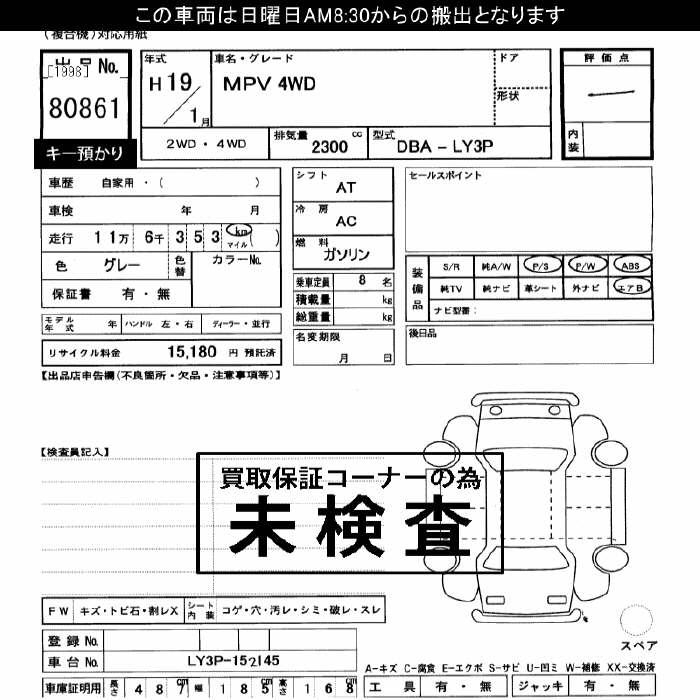 この車両は日曜日AM8:30からの搬出となります
(複合機)対応用紙
出品No.
[1998]
80861
キー預かり
年式
H 19 / 1月
車名・グレード
MPV 4WD
ドア
形状
評価点
内装
2WD・4WD
排気量 2300 cc
型式 DBA-LY3P
車歴 自家用・( )
車検 年 月
走行 11万 6千 353 km マイル ( )
色 グレー 色替 カラーNo.
保証書 有・無
シフト AT
冷房 AC
燃料 ガソリン
乗車定員 8 名
積載量 kg
総重量 kg
名変期限 月 日
セールスポイント
装備品
S/R 純A/W P/S P/W ABS
純TV 純ナビ 革シート 外ナビ エアB
ナビ型番:
後日品
モデル年式 年 ハンドル 左・右 ディーラー・並行
リサイクル料金 15,180 円 預託済
【出品店申告欄(不良箇所・欠品・注意事項等)】
【検査員記入】
買取保証コーナーの為
未検査
FW キズ・トビ石・割レX シート内装 コゲ・穴・汚レ・シミ・破レ・スレ
登録No.
車台No. LY3P-152145
車庫証明用 長さ 487cm 幅 185cm 高さ 168cm
スペア
A-キズ C-腐食 E-エクボ S-サビ U-凹ミ W-補修 XX-交換済
工具 有・無 ジャッキ 有・無